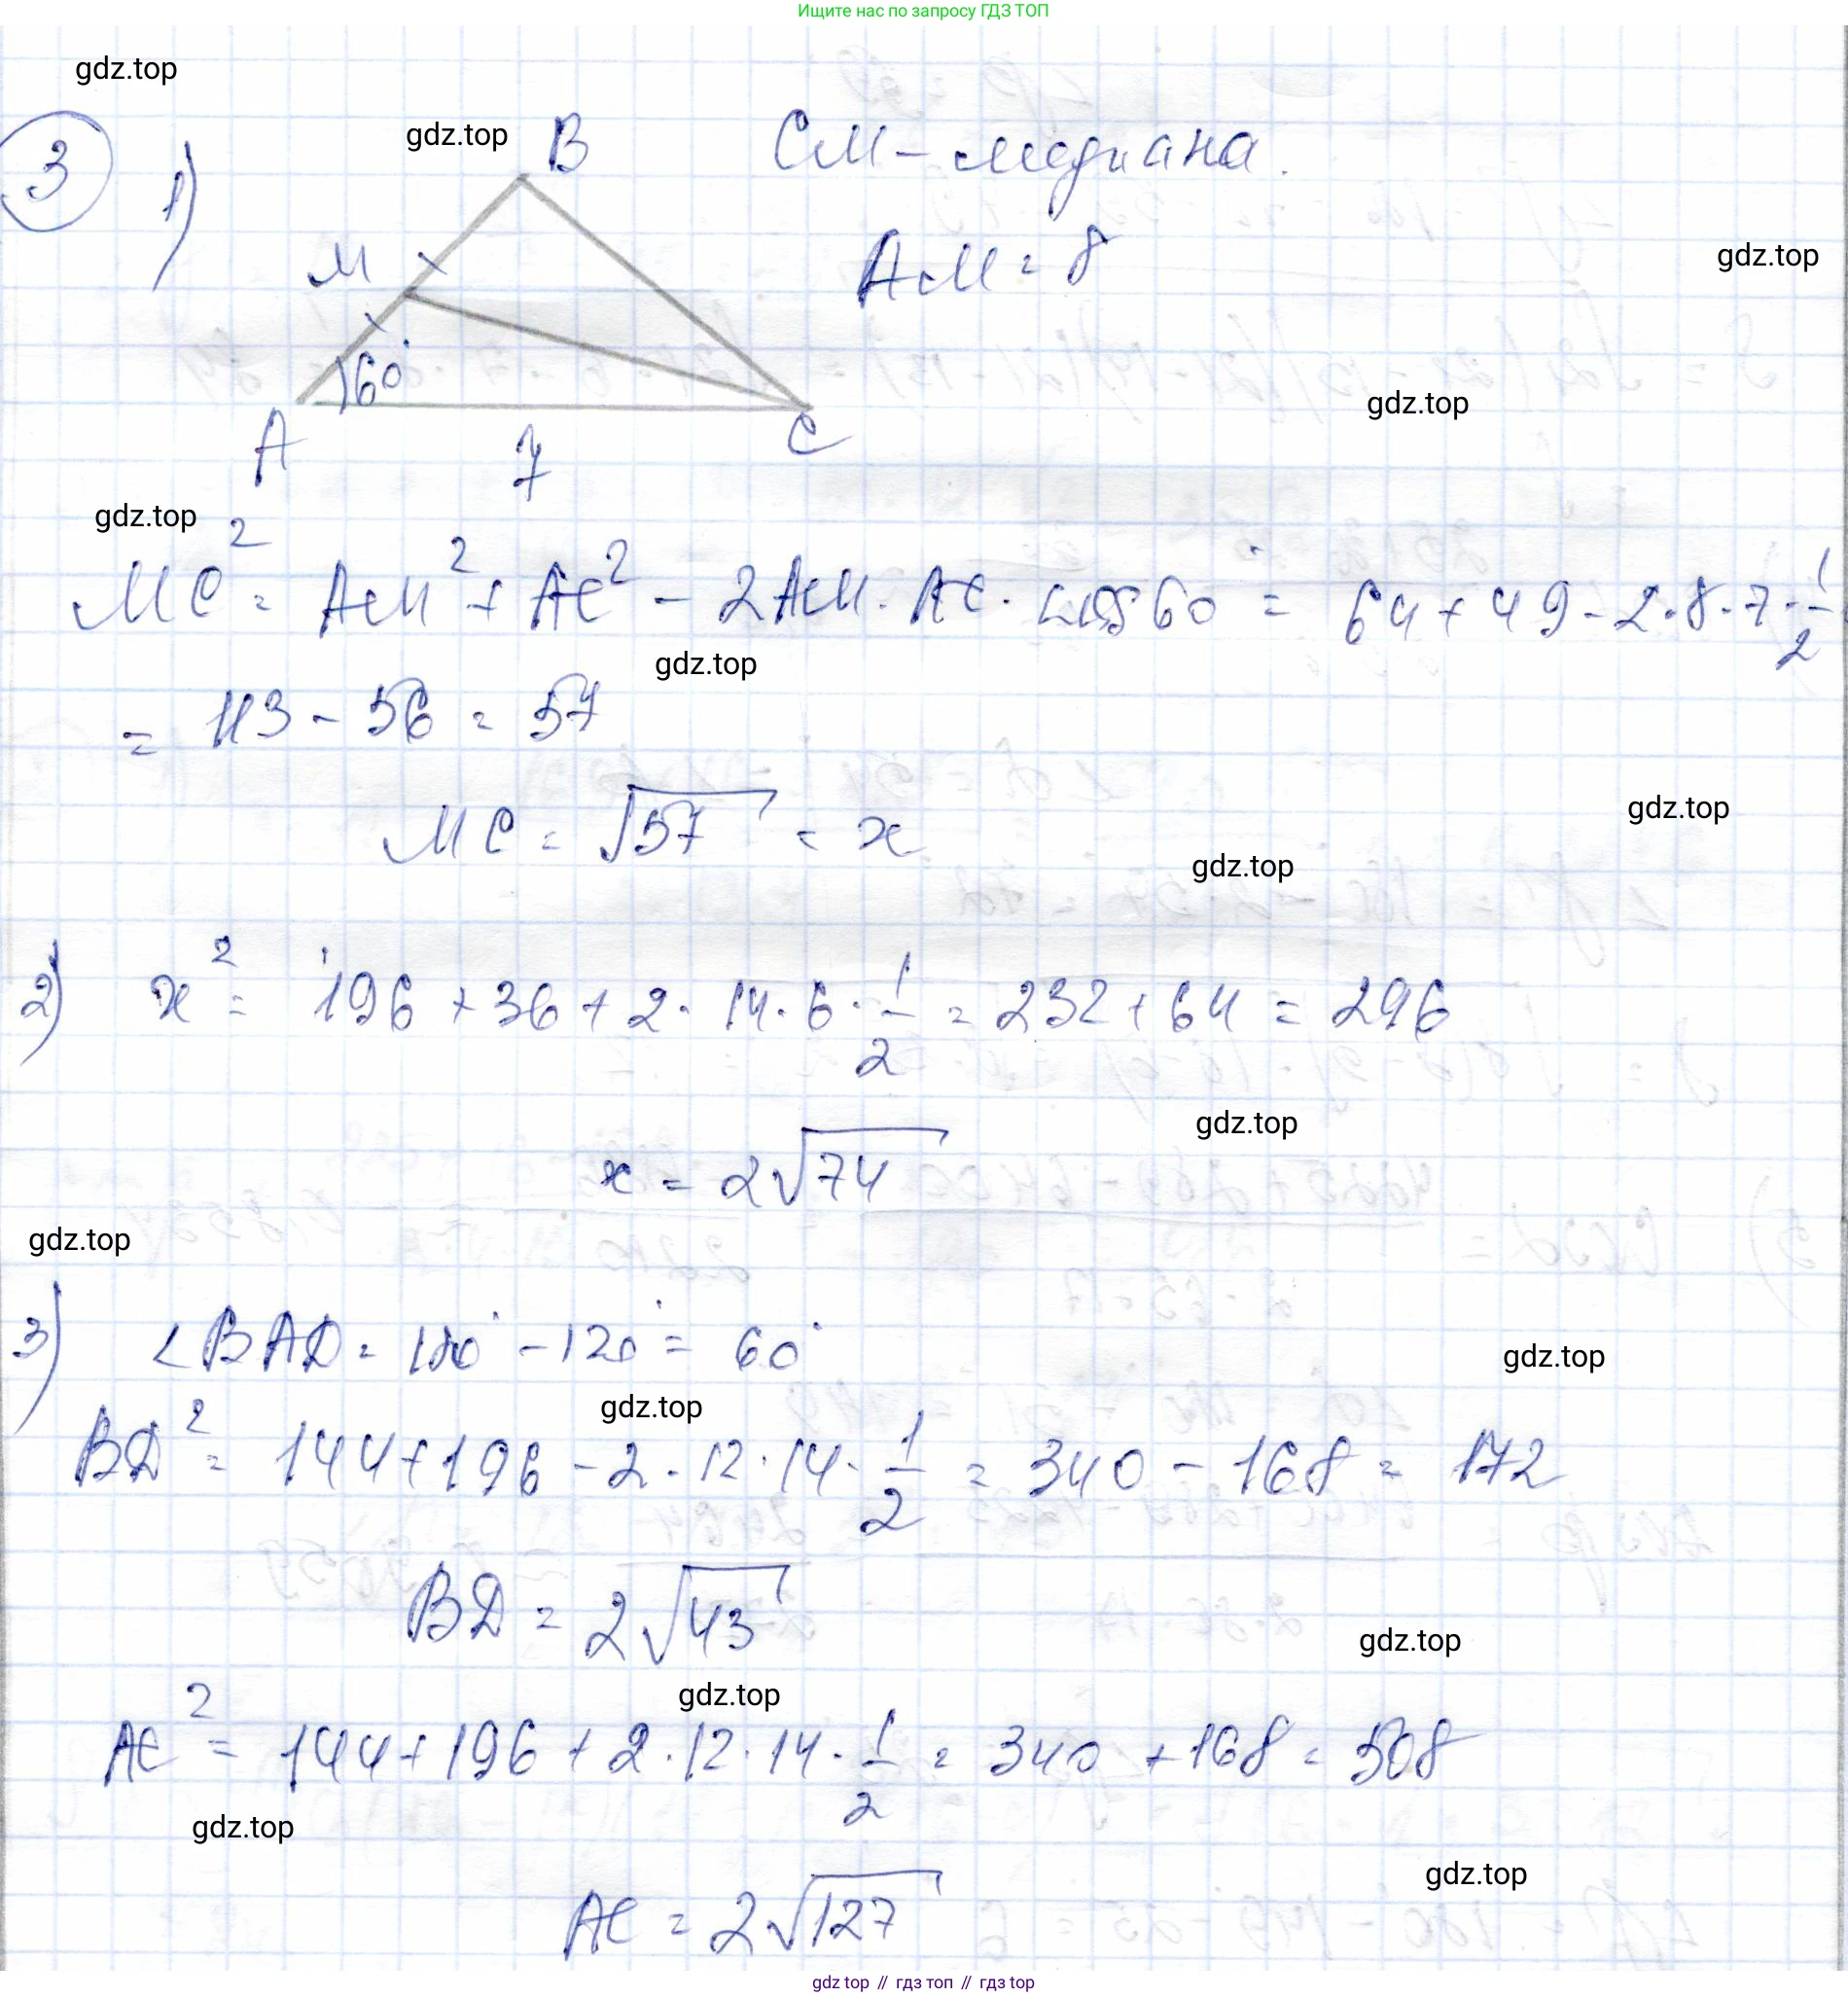 Ищите нас по запросу ГДЗ ТОП
gdz.top
gdz.top
3
1)
B
CM - медиана.
M
AM = 8
gdz.top
60°
gdz.top
A
7
C
gdz.top
MC² = AM² + AC² - 2AM · AC · cos60° = 64 + 49 - 2·8·7·1/2
gdz.top
= 113 - 56 = 57
gdz.top
MC = √57 = x
gdz.top
2) x² = 196 + 36 + 2 · 14 · 6 · 1/2 = 232 + 64 = 296
gdz.top
x = 2√74
gdz.top
3) ∠BAD = 180° - 120° = 60°
gdz.top
gdz.top
BD² = 144 + 196 - 2 · 12 · 14 · 1/2 = 340 - 168 = 172
BD = 2√43
gdz.top
gdz.top
AC² = 144 + 196 + 2 · 12 · 14 · 1/2 = 340 + 168 = 508
gdz.top
gdz.top
AC = 2√127
gdz top // гдз топ // гдз top